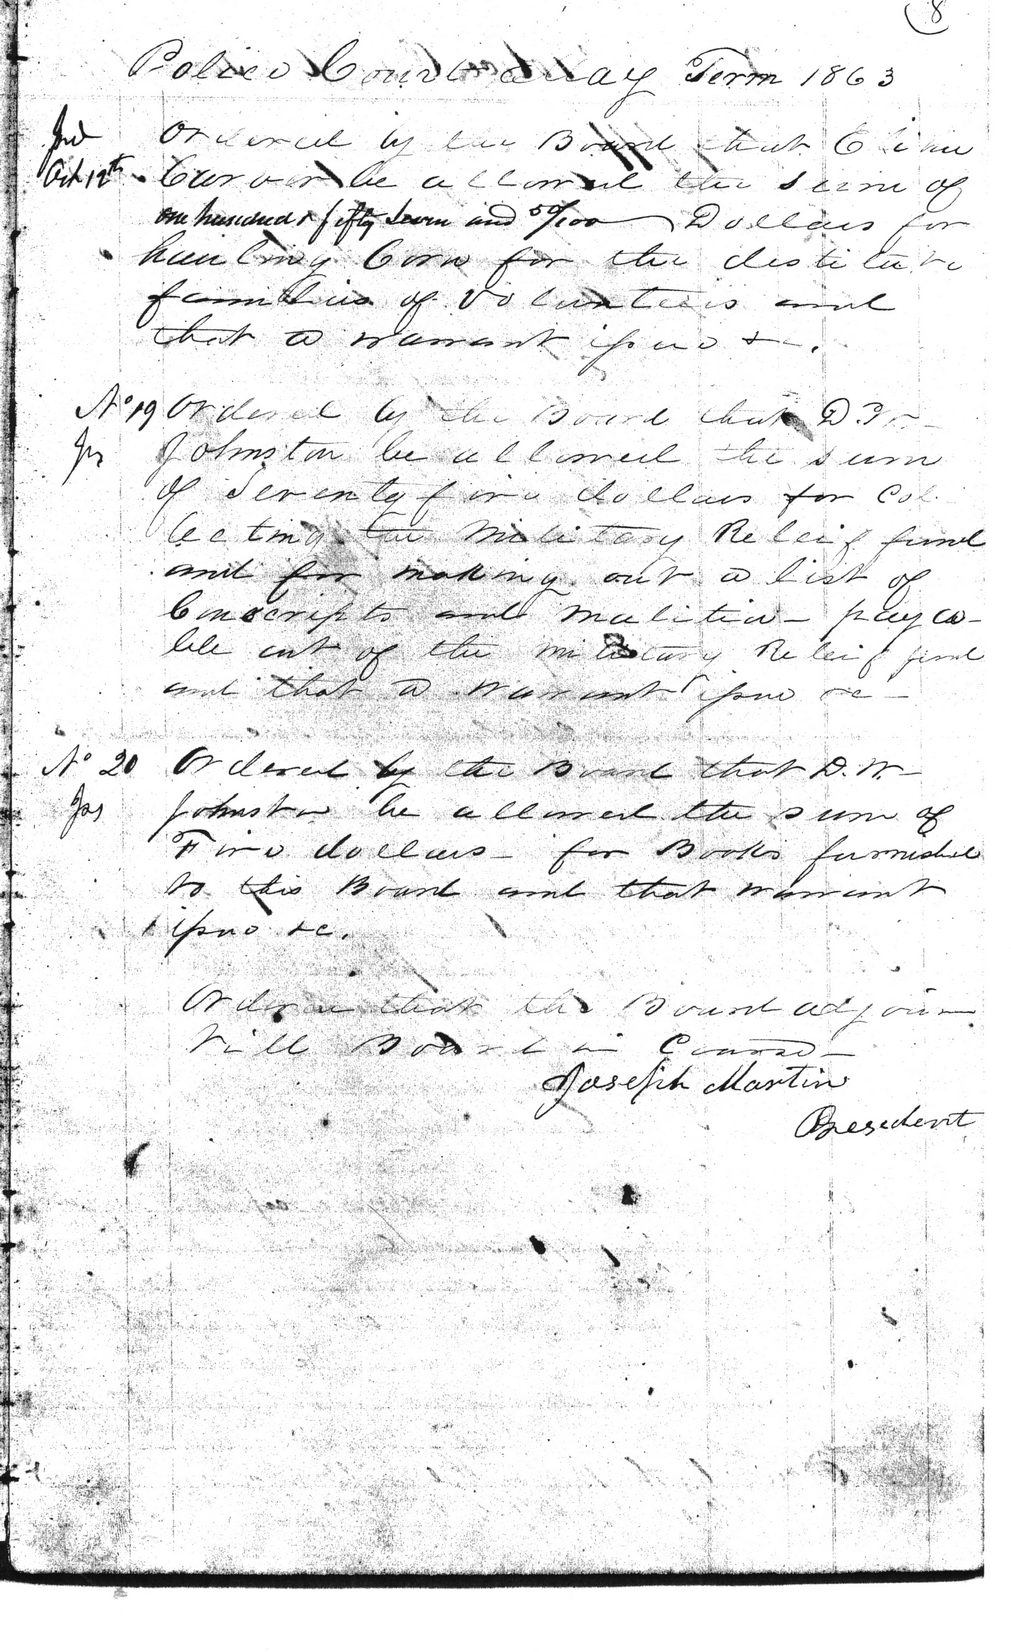 8
Police Court May Term 1863
Ordered by the Board that
Oct 12th Carver be allowed the sum of
one hundred & fifty seven and 50/100 Dollars for
hauling Corn for the destitute
families of Volunteers and
that a warrant issue &c.
No 19 Ordered by the Board that D. W.
Johnston be allowed the sum
of Seventy five dollars for Col
lecting the Military Releif fund
and for making out a list of
Conscripts and Malitia - paya-
ble out of the Military Releif fund
and that a warrant issue &c -
No 20 Ordered by the Board that D. W.
Johnston be allowed the sum of
Five dollars - for Books furnished
to this Board and that warrant
issue &c.
Ordered that the Board adjourn
till Board in Course -
Joseph Martin
President